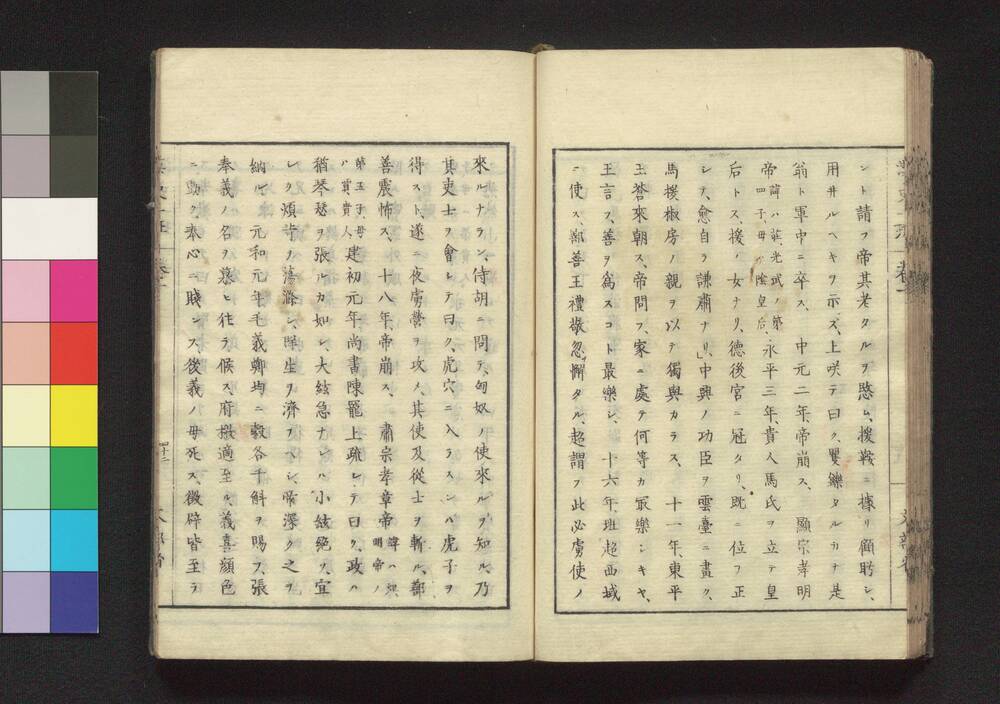 ント請フ帝其老タルヲ愍ム、援鞍ニ據リ顧眄シ、
用井ルヘキヲ示ス、上咲テ曰ク、矍鑠タルカナ是
翁ト軍中ニ卒ス、中元二年、帝崩ス、顯宗孝明
帝諱ハ莊、光武ノ第四子、母ハ陰皇后、永平三年、貴人馬氏ヲ立テ皇
后トス、援ノ女ナリ、德後宮ニ冠タリ、既ニ位ヲ正
シテ、愈自ラ謙肅ナリ、」中興ノ功臣ヲ雲臺ニ畫ク、
馬援椒房ノ親ヲ以テ獨與カラス、十一年、東平
王蒼來朝ス、帝問フ、家ニ處テ何等カ最樂シキヤ、
王言フ、善ヲ爲スコト最樂シ、十六年、班超西域
ニ使ス、鄯善王禮敬忽懈タル、超謂フ此必虜使ノ
來ルナラン、侍胡ニ問テ、匈奴ノ使來ルヲ知ル、乃
其吏士ヲ會シテ曰ク、虎穴ニ入ラスンハ虎子ヲ
得スト、遂ニ夜虜營ヲ攻メ、其使及從士ヲ斬ル、鄯
善震怖ス、十八年、帝崩ス、肅宗孝章帝諱ハ炟、明帝ノ
第五子、母ハ賈貴人、建初元年、尚書陳寵上疏シテ曰ク、政ハ
猶琴瑟ヲ張ルカ如シ、大絃急ナレハ小絃絶ツ、宜
シク煩苛ノ蕩滌シ、羣生ヲ濟フヘシ、帝深ク之ヲ
納ル、元和元年毛義鄭均ニ穀各千斛ヲ賜フ、張
奉義ノ名ヲ慕ヒ往テ候ス、府檄適至ル、義喜顏色
ニ動ク、奉心ニ賤シス、後義ノ母死ス、徵辟皆至ラ
四十二